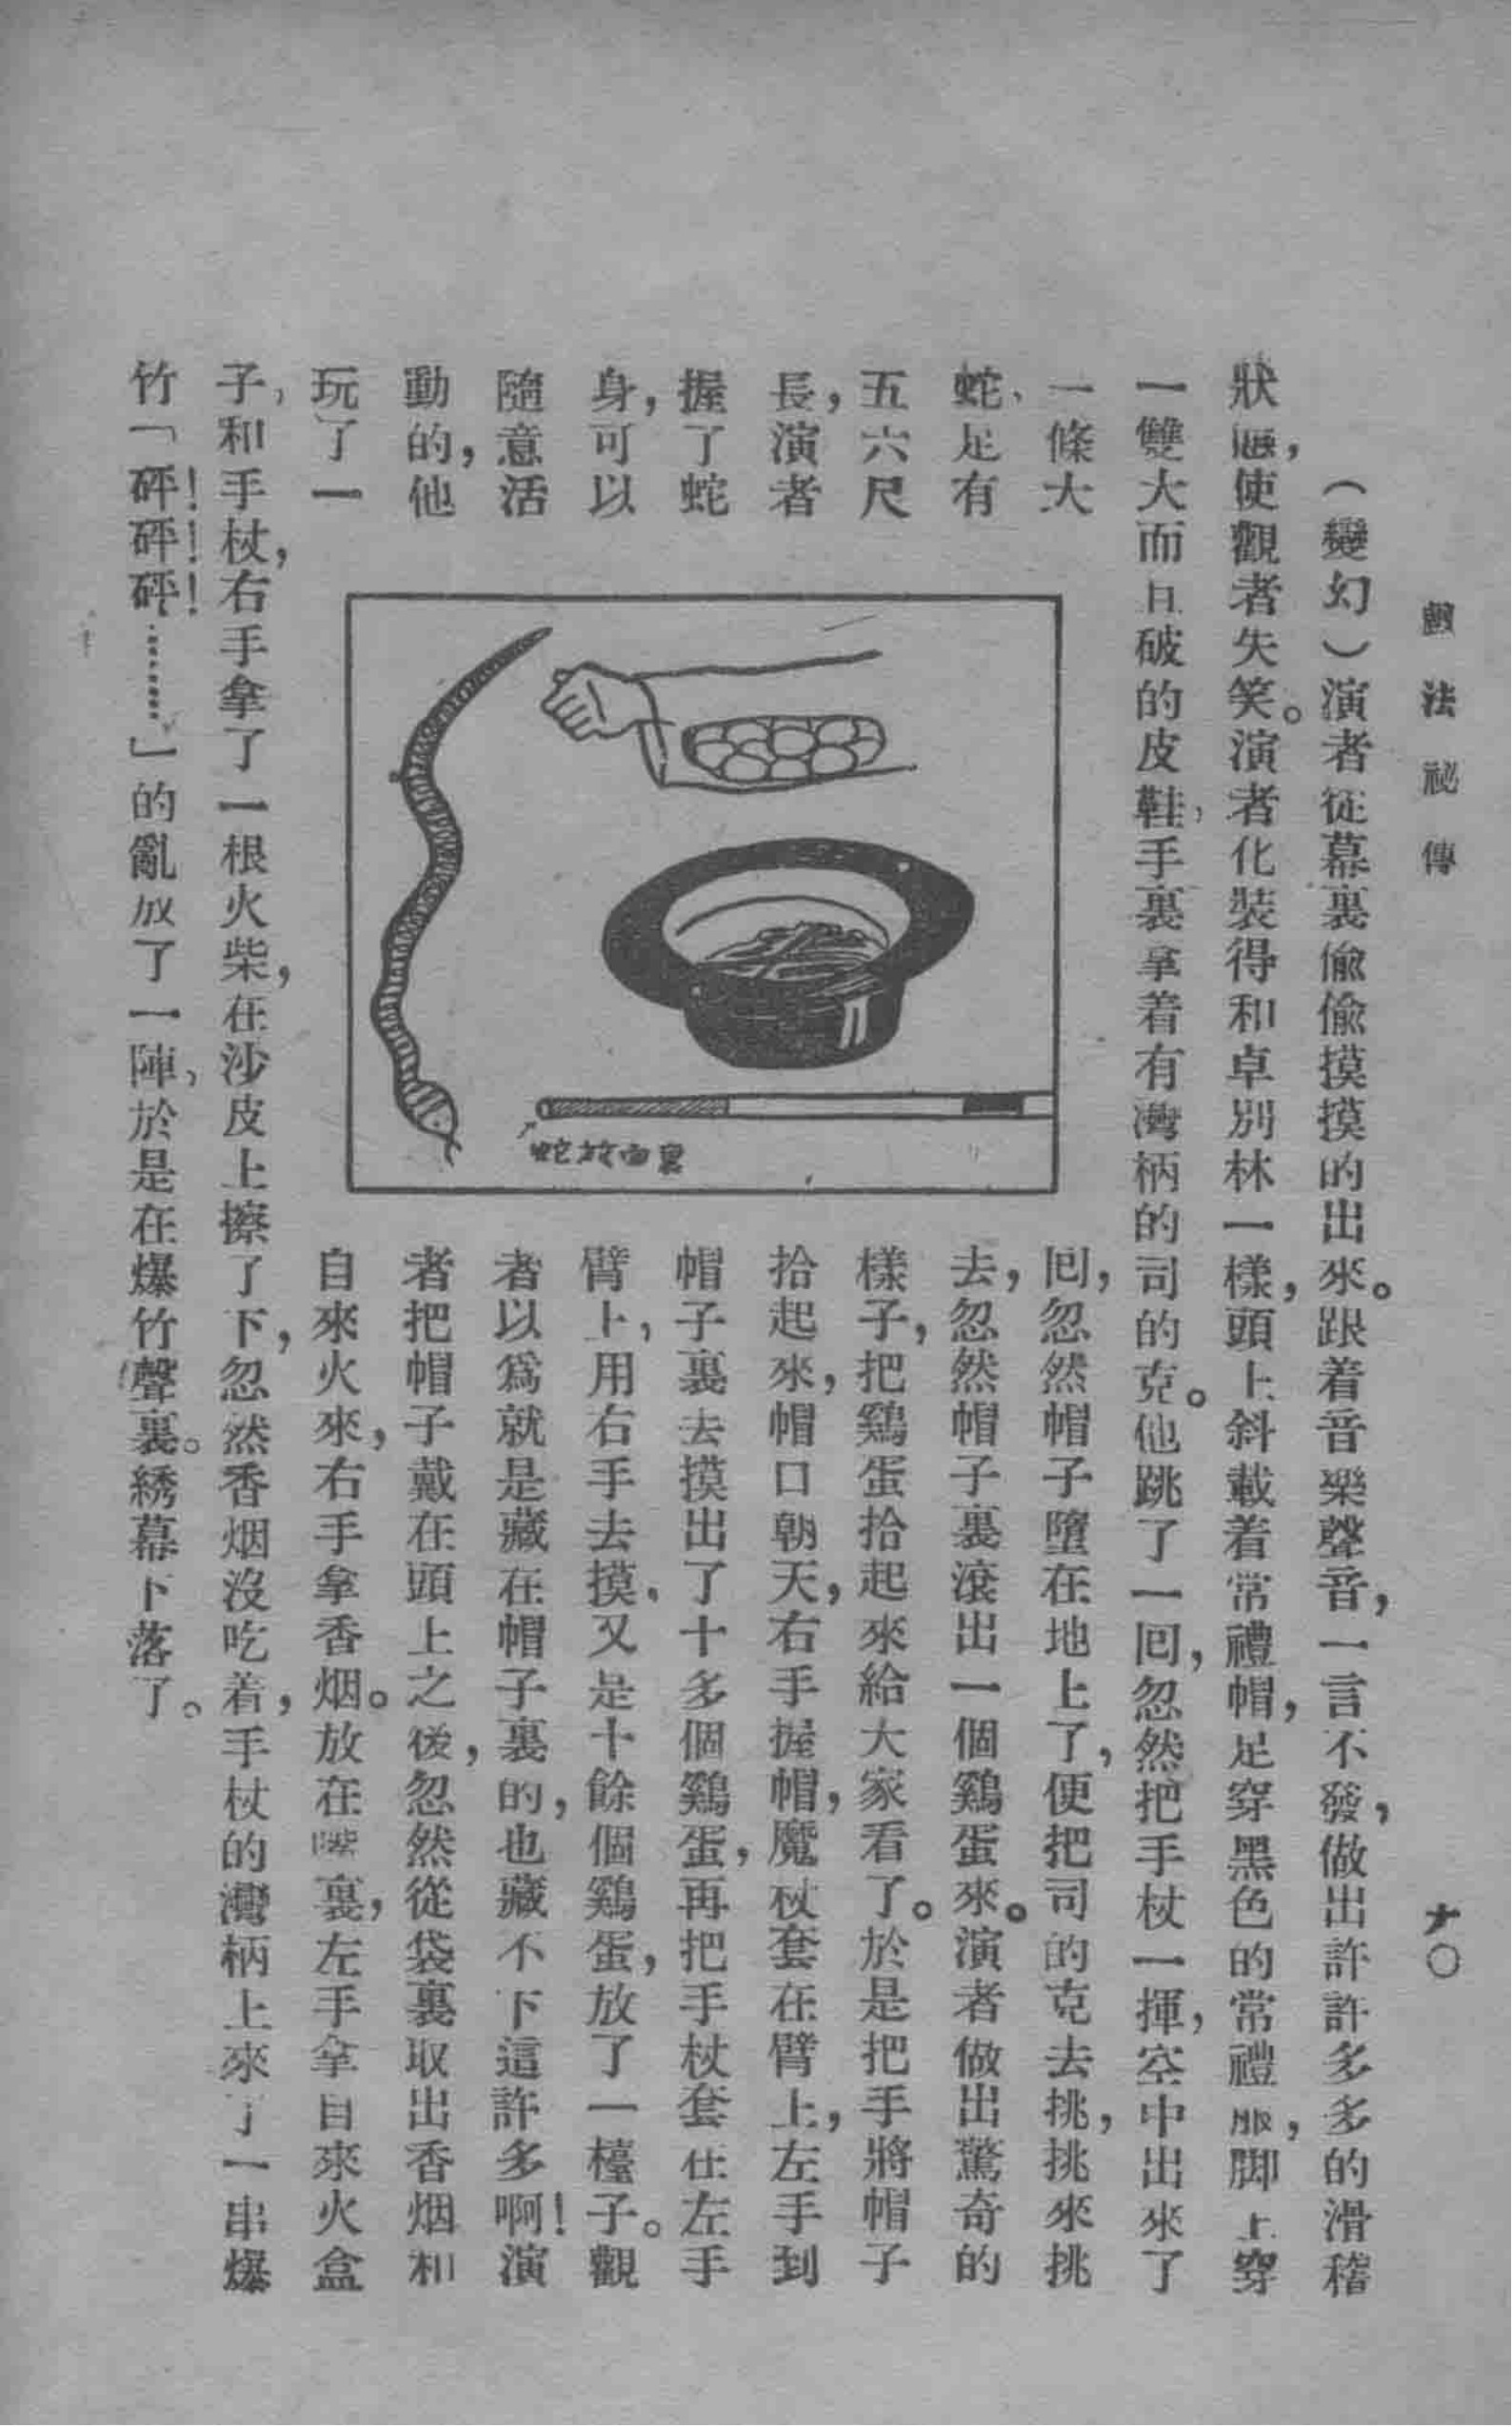 戲法祕傳
（變幻）演者從幕裏偸偸摸摸的出來。跟着音樂聲音，一言不發，做出許許多多的滑稽
狀態，使觀者失笑。演者化裝得和卓別林一樣，頭上斜載着常禮帽，足穿黑色的常禮服，脚上穿
一雙大而且破的皮鞋，手裏拿着有灣柄的司的克。他跳了一囘，忽然把手杖一揮，空中出來了
一條大
蛇、足有
五六尺
長，演者
握了蛇
身，可以
隨意活
動的，他
玩了一
裏面放蛇
囘，忽然帽子墮在地上了，便把司的克去挑，挑來挑
去，忽然帽子裏滾出一個鷄蛋來。演者做出驚奇的
樣子，把鷄蛋拾起來給大家看了。於是把手將帽子
拾起來，帽口朝天，右手握帽，魔杖套在臂上，左手到
帽子裏去摸出了十多個鷄蛋，再把手杖套在左手
臂上，用右手去摸，又是十餘個鷄蛋，放了一檯子。觀
者以爲就是藏在帽子裏的，也藏不下這許多啊！演
者把帽子戴在頭上之後，忽然從袋裏取出香烟和
自來火來，右手拿香烟。放在嘴裏，左手拿自來火盒
子，和手杖，右手拿了一根火柴，在沙皮上擦了下，忽然香烟沒吃着，手杖的灣柄上來了一串爆
竹「砰！砰！砰！………」的亂放了一陣，於是在爆竹聲裏。綉幕下落了。